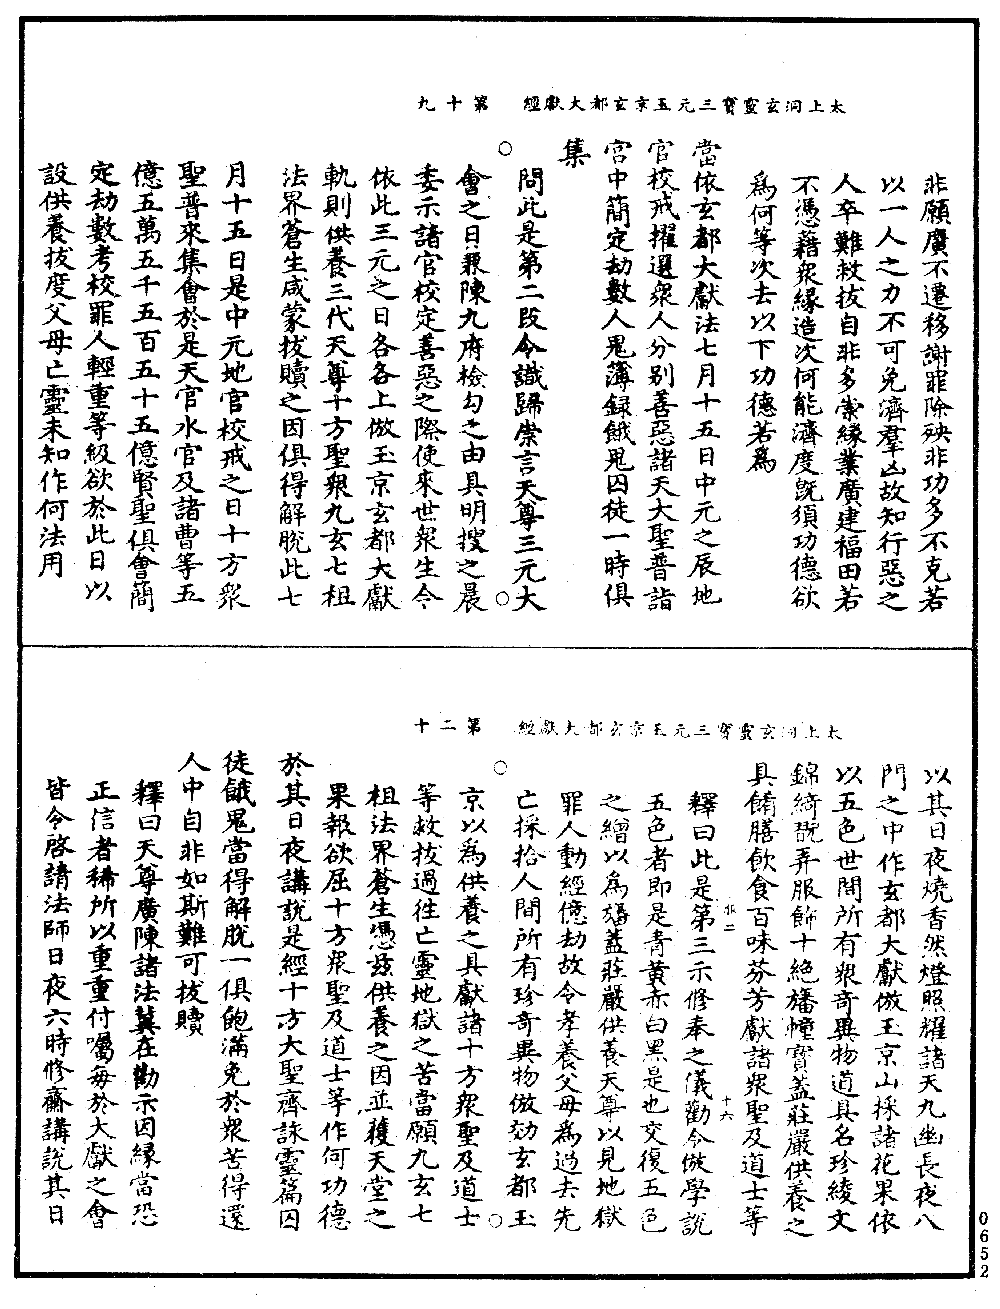 太上洞玄靈寶三元玉京玄都大獻經　第十九
非願廣不遷移謝罪除殃非功多不克若
以一人之力不可免濟羣凶故知行惡之
人卒難救拔自非多崇緣業廣建福田若
不憑藉衆緣造次何能濟度旣須功德欲
爲何等次去以下功德若爲
當依玄都大獻法七月十五日中元之辰地
官校戒擢選衆人分別善惡諸天大聖普詣
宮中簡定劫數人鬼簿録餓鬼囚徒一時俱
集
問此是第二段令識歸崇言天尊三元大
會之日兼陳九府檢勾之由具明搜之晨
委示諸官校定善惡之際使來世衆生令
依此三元之日各各上倣玉京玄都大獻
軌則供養三代天尊十方聖衆九玄七祖
法界蒼生咸蒙拔贖之因俱得解脫此七
月十五日是中元地官校戒之日十方衆
聖普來集會於是天官水官及諸曹等五
億五萬五千五百五十五億賢聖俱會簡
定劫數考校罪人輕重等級欲於此日以
設供養拔度父母亡靈未知作何法用
太上洞玄靈寶三元玉京玄都大獻經　第二十
以其日夜燒香然燈照耀諸天九幽長夜八
門之中作玄都大獻倣玉京山採諸花果依
以五色世間所有衆奇異物道具名珍綾文
錦綺翫弄服飾十絶旛幢寶蓋莊嚴供養之
具餚膳飲食百味芬芳獻諸衆聖及道士等
釋曰此是第三示修奉之儀勸令倣學說
五色者即是青黃赤白黑是也交復五色
之繒以爲旛蓋莊嚴供養天尊以見地獄
罪人動經億劫故令孝養父母爲過去先
亡採拾人間所有珍奇異物倣効玄都玉
京以爲供養之具獻諸十方衆聖及道士
等救拔過往亡靈地獄之苦當願九玄七
祖法界蒼生憑茲供養之因並獲天堂之
果報欲屈十方衆聖及道士等作何功德
於其日夜講說是經十方大聖齊詠靈篇囚
徒餓鬼當得解脫一俱飽滿免於衆苦得還
人中自非如斯難可拔贖
釋曰天尊廣陳諸法冀在勸示因緣當恐
正信者稀所以重重付囑每於大獻之會
皆令啓請法師日夜六時修齋講說其日
十六
0652